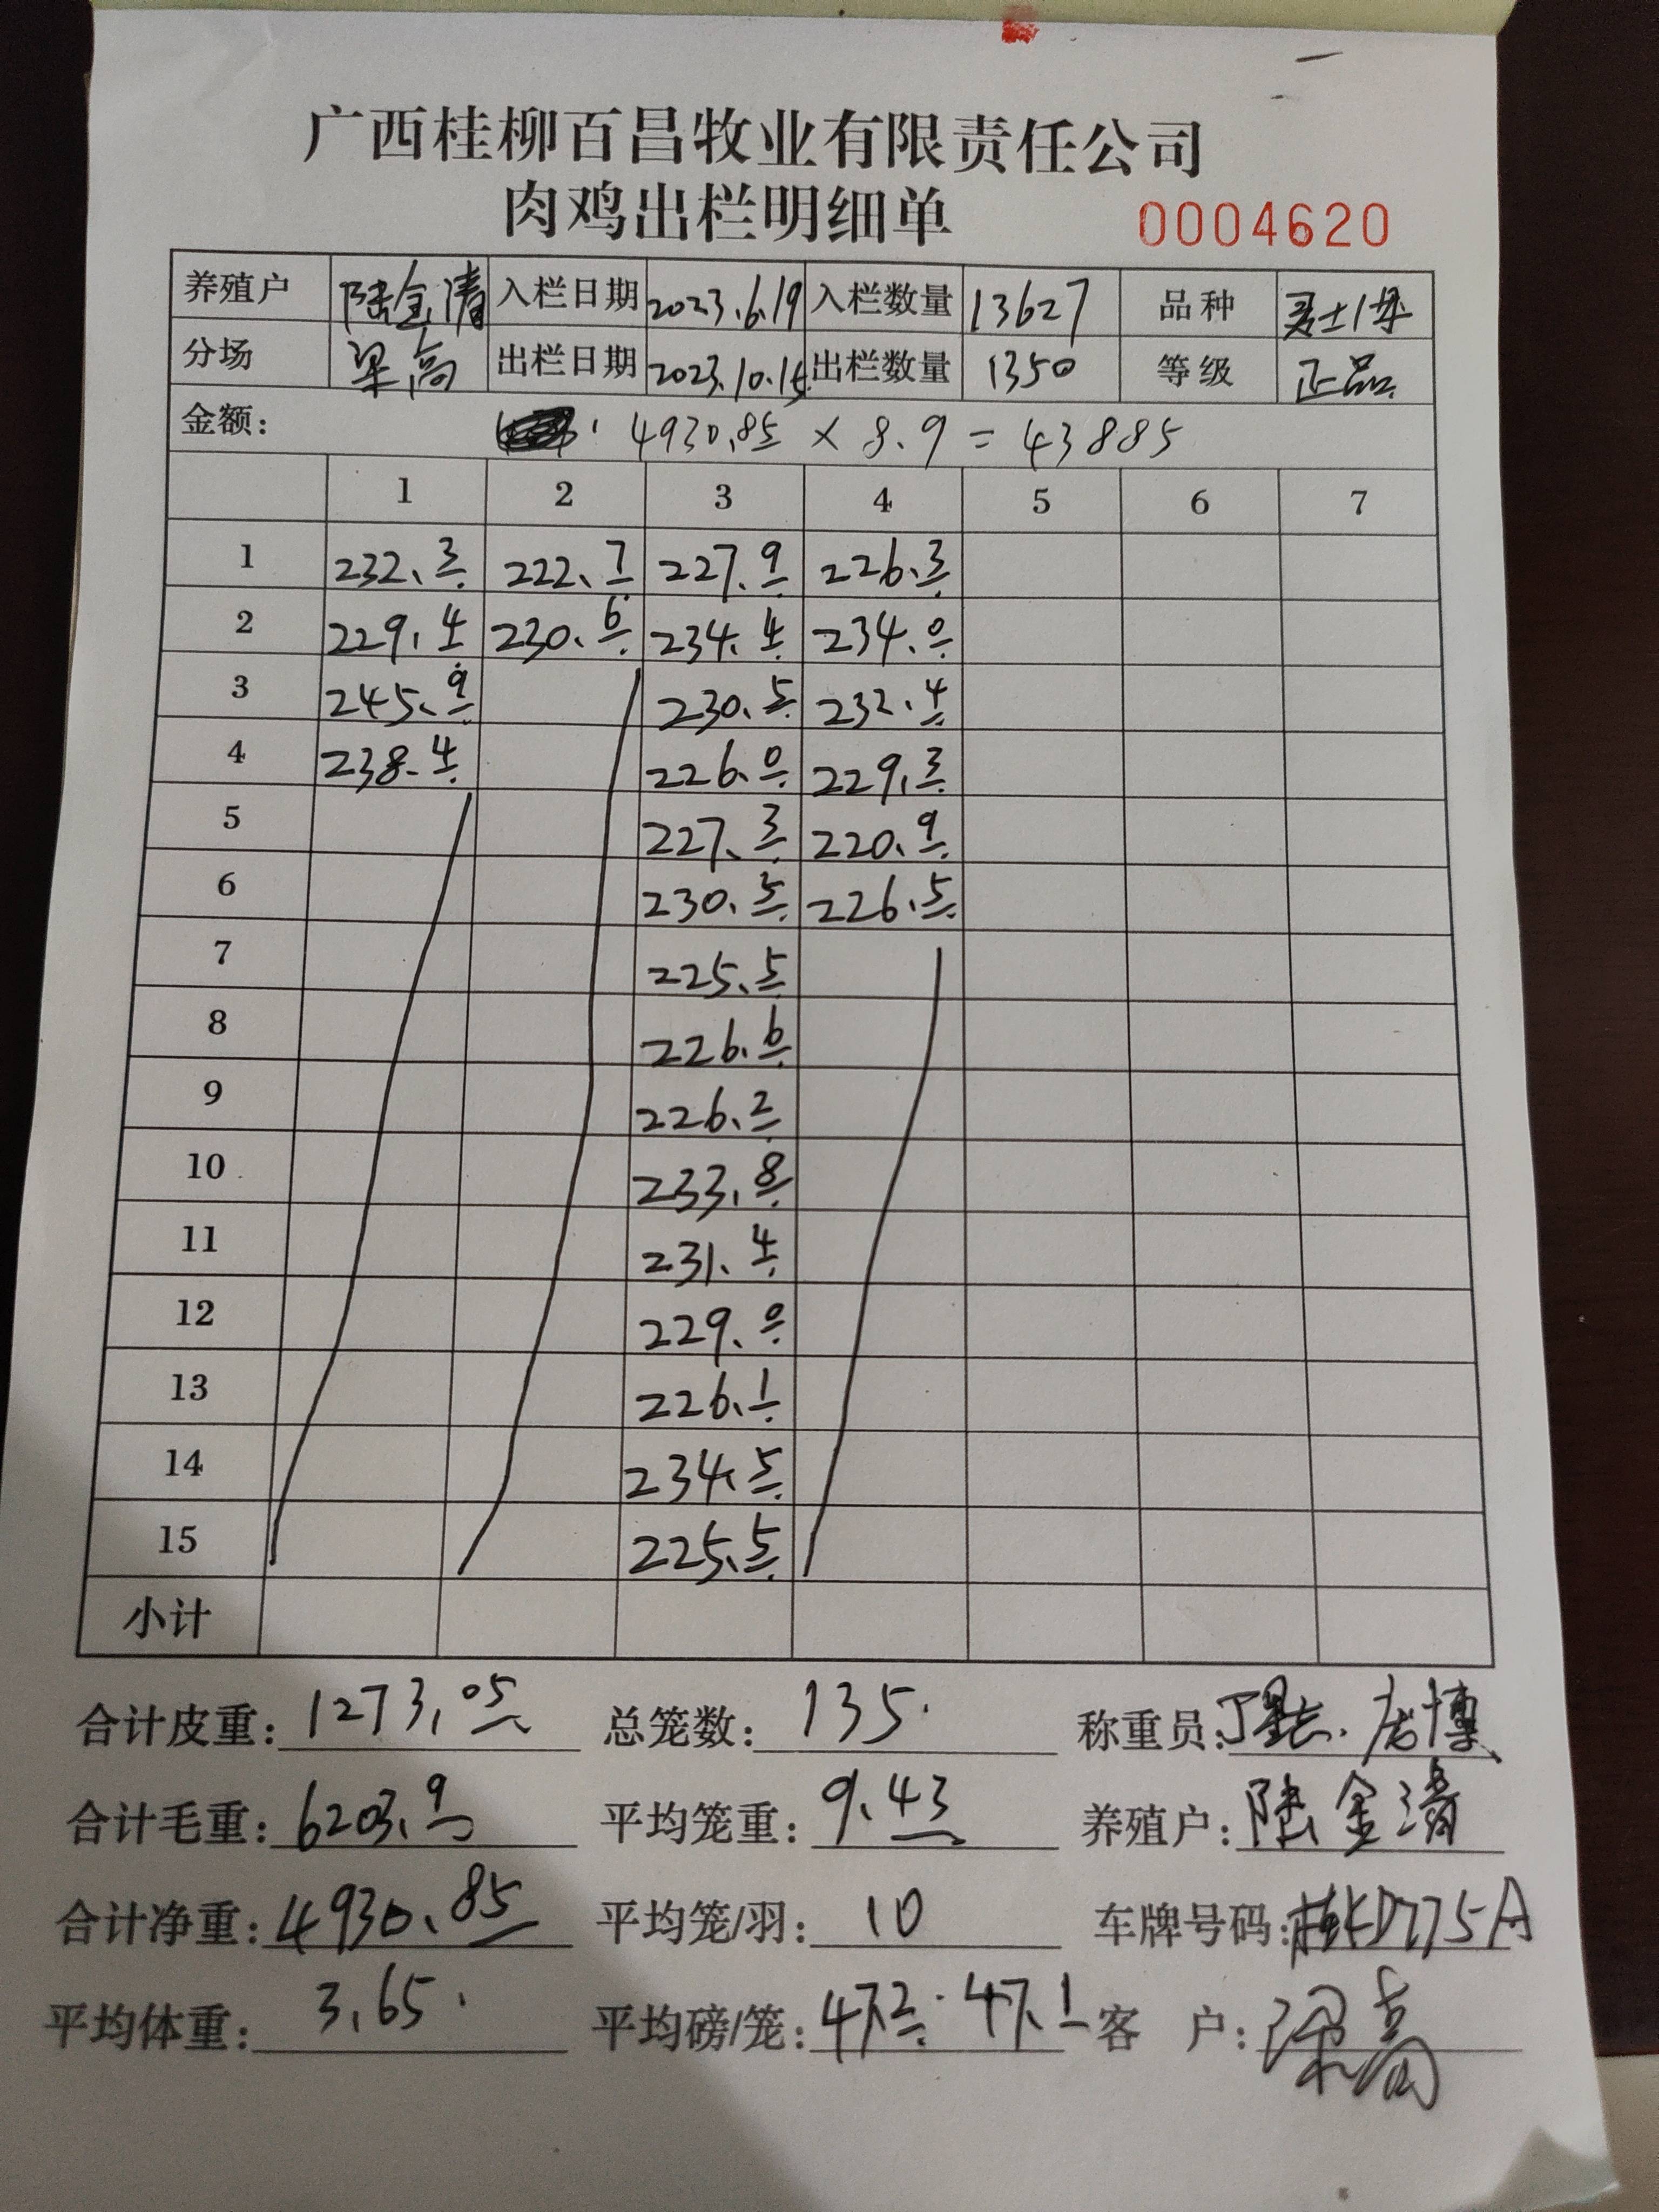 广西桂柳百昌牧业有限责任公司
肉鸡出栏明细单 0004620
养殖户 陆金清 入栏日期 2023.6.19 入栏数量 13627 品种
分场 梁高 出栏日期 2023.10.15 出栏数量 1350 等级 正品
金额: 4930.85 × 8.9 = 43885
1 2 3 4 5 6 7
1 232.3 222.7 227.9 226.3
2 229.4 230.6 234.4 234.0
3 245.9 230.5 232.4
4 238.4 226.0 229.3
5 227.3 220.9
6 230.5 226.5
7 225.5
8 226.6
9 226.2
10 233.8
11 231.4
12 229.0
13 226.1
14 234.5
15 225.5
小计
合计皮重: 1273.05 总笼数: 135. 称重员:
合计毛重: 6203.9 平均笼重: 9.43 养殖户: 陆金清
合计净重: 4930.85 平均笼/羽: 10 车牌号码: 桂KD775A
平均体重: 3.65. 平均磅/笼: 47.2 · 47.1 客 户: 梁高